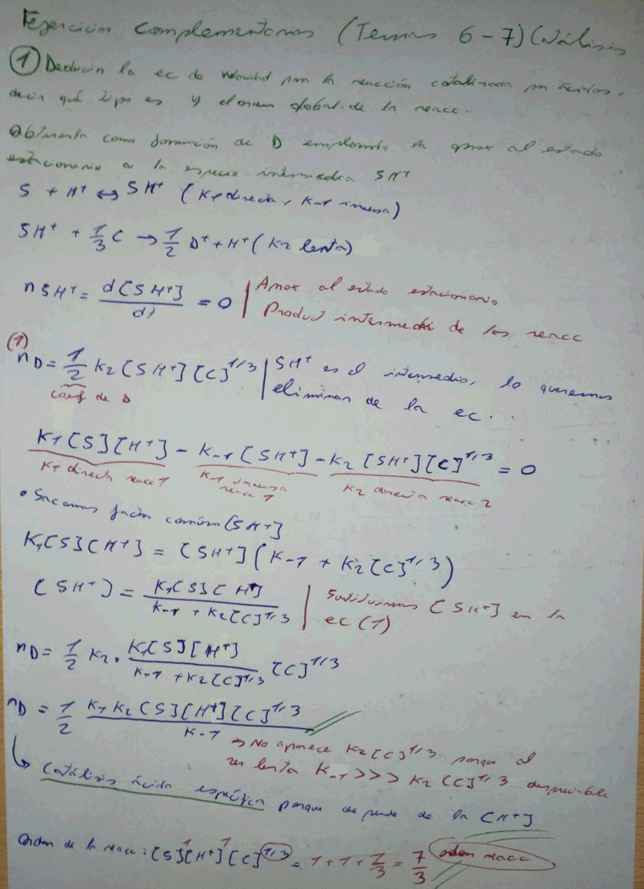 Ejercicios complementarios (Temas 6-7) (Catálisis
① Deducir la ec de velocidad para la reacción catalizada por ácidos,
decir qué tipo es y el orden global de la reacc.
como formación de D empleando la aprox al estado
estacionario a la especie intermedia SH⁺
S + H⁺ ↔ SH⁺ (K1 directa, K-1 inversa)
SH⁺ + 1/3 C → 1/2 D⁺ + H⁺ (K2 lenta)
r SH⁺ = d[SH⁺]/dt = 0 | Aprox al estado estacionario
Product intermedi de las reacc
(1)
r D = 1/2 K2 [SH⁺] [C]^1/3 | SH⁺ es el intermedio, lo queremos
eliminar de la ec...
coef de D
K1 [S][H⁺] - K-1 [SH⁺] - K2 [SH⁺][C]^1/3 = 0
K1 directa reacc 1 K-1 inversa reacc 1 K2 directa reacc 2
• Sacamos factor común [SH⁺]
K1 [S][H⁺] = [SH⁺] (K-1 + K2 [C]^1/3)
[SH⁺] = K1 [S][H⁺] / K-1 + K2 [C]^1/3 | Sustituimos [SH⁺] en la
ec (1)
r D = 1/2 K2 · K1 [S][H⁺] / K-1 + K2 [C]^1/3 [C]^1/3
r D = 1/2 K1 K2 [S][H⁺][C]^1/3 / K-1
⇒ No aparece K2 [C]^1/3 porque al
ser lenta K-1 >>> K2 [C]^1/3 despreciable
↳ Catálisis ácida específica porque depende de la [H⁺]
Orden de la reacc: [S]^1 [H⁺]^1 [C]^1/3 = 1 + 1 + 1/3 = 7/3 orden reacc